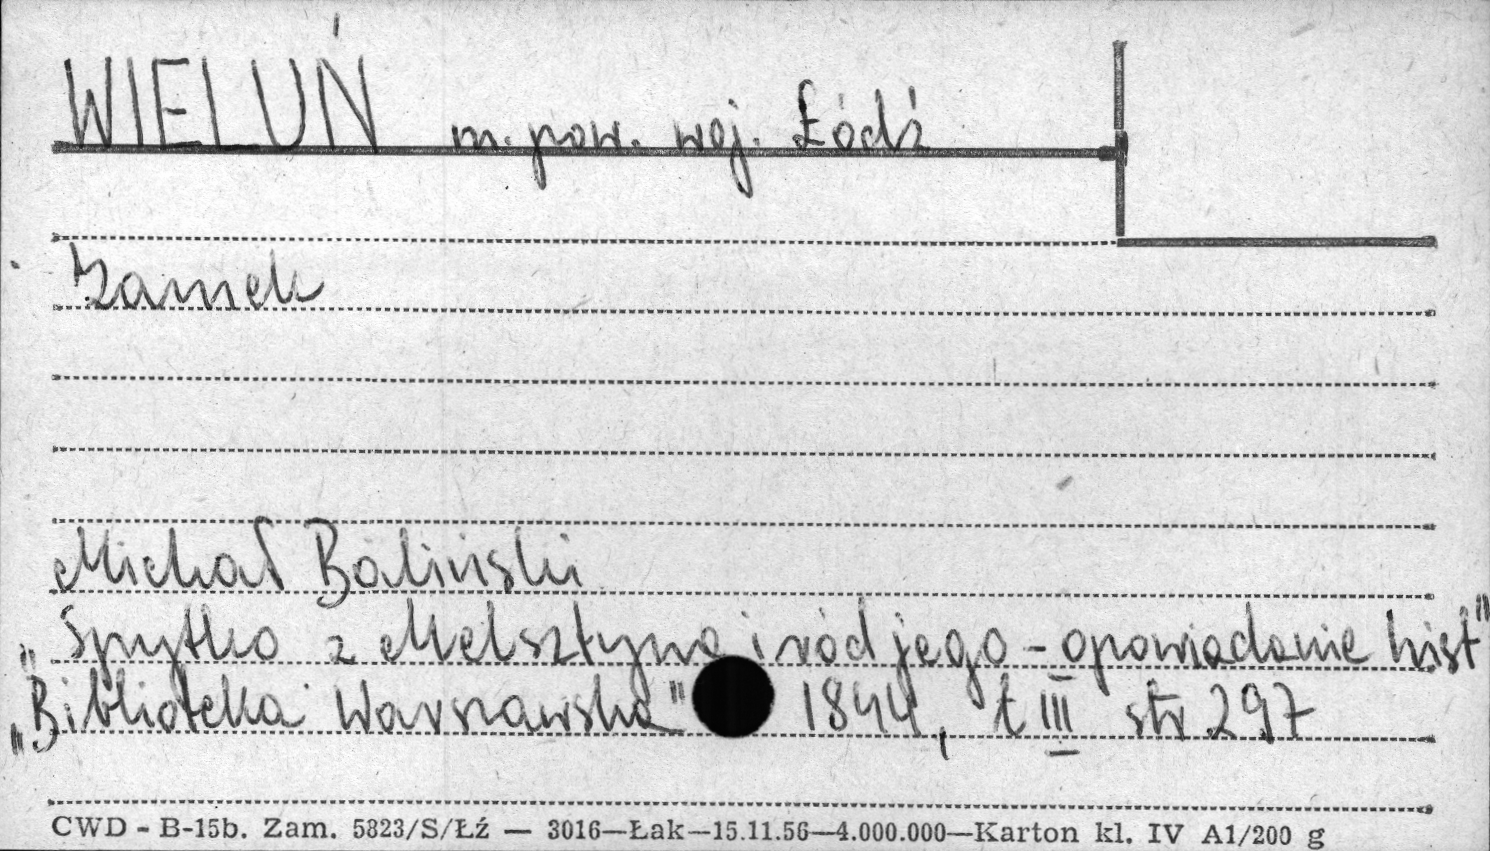 WIELUŃ m. pow. woj. Łódź
Zamek
Michał Baliński
„Spytko z Melsztyna i ród jego - opowiadanie hist"
„Biblioteka Warszawska" 1844, t III str 297
CWD - B-15b. Zam. 5823/S/Łź — 3016—Łak—15.11.56—4.000.000—Karton kl. IV A1/200 g